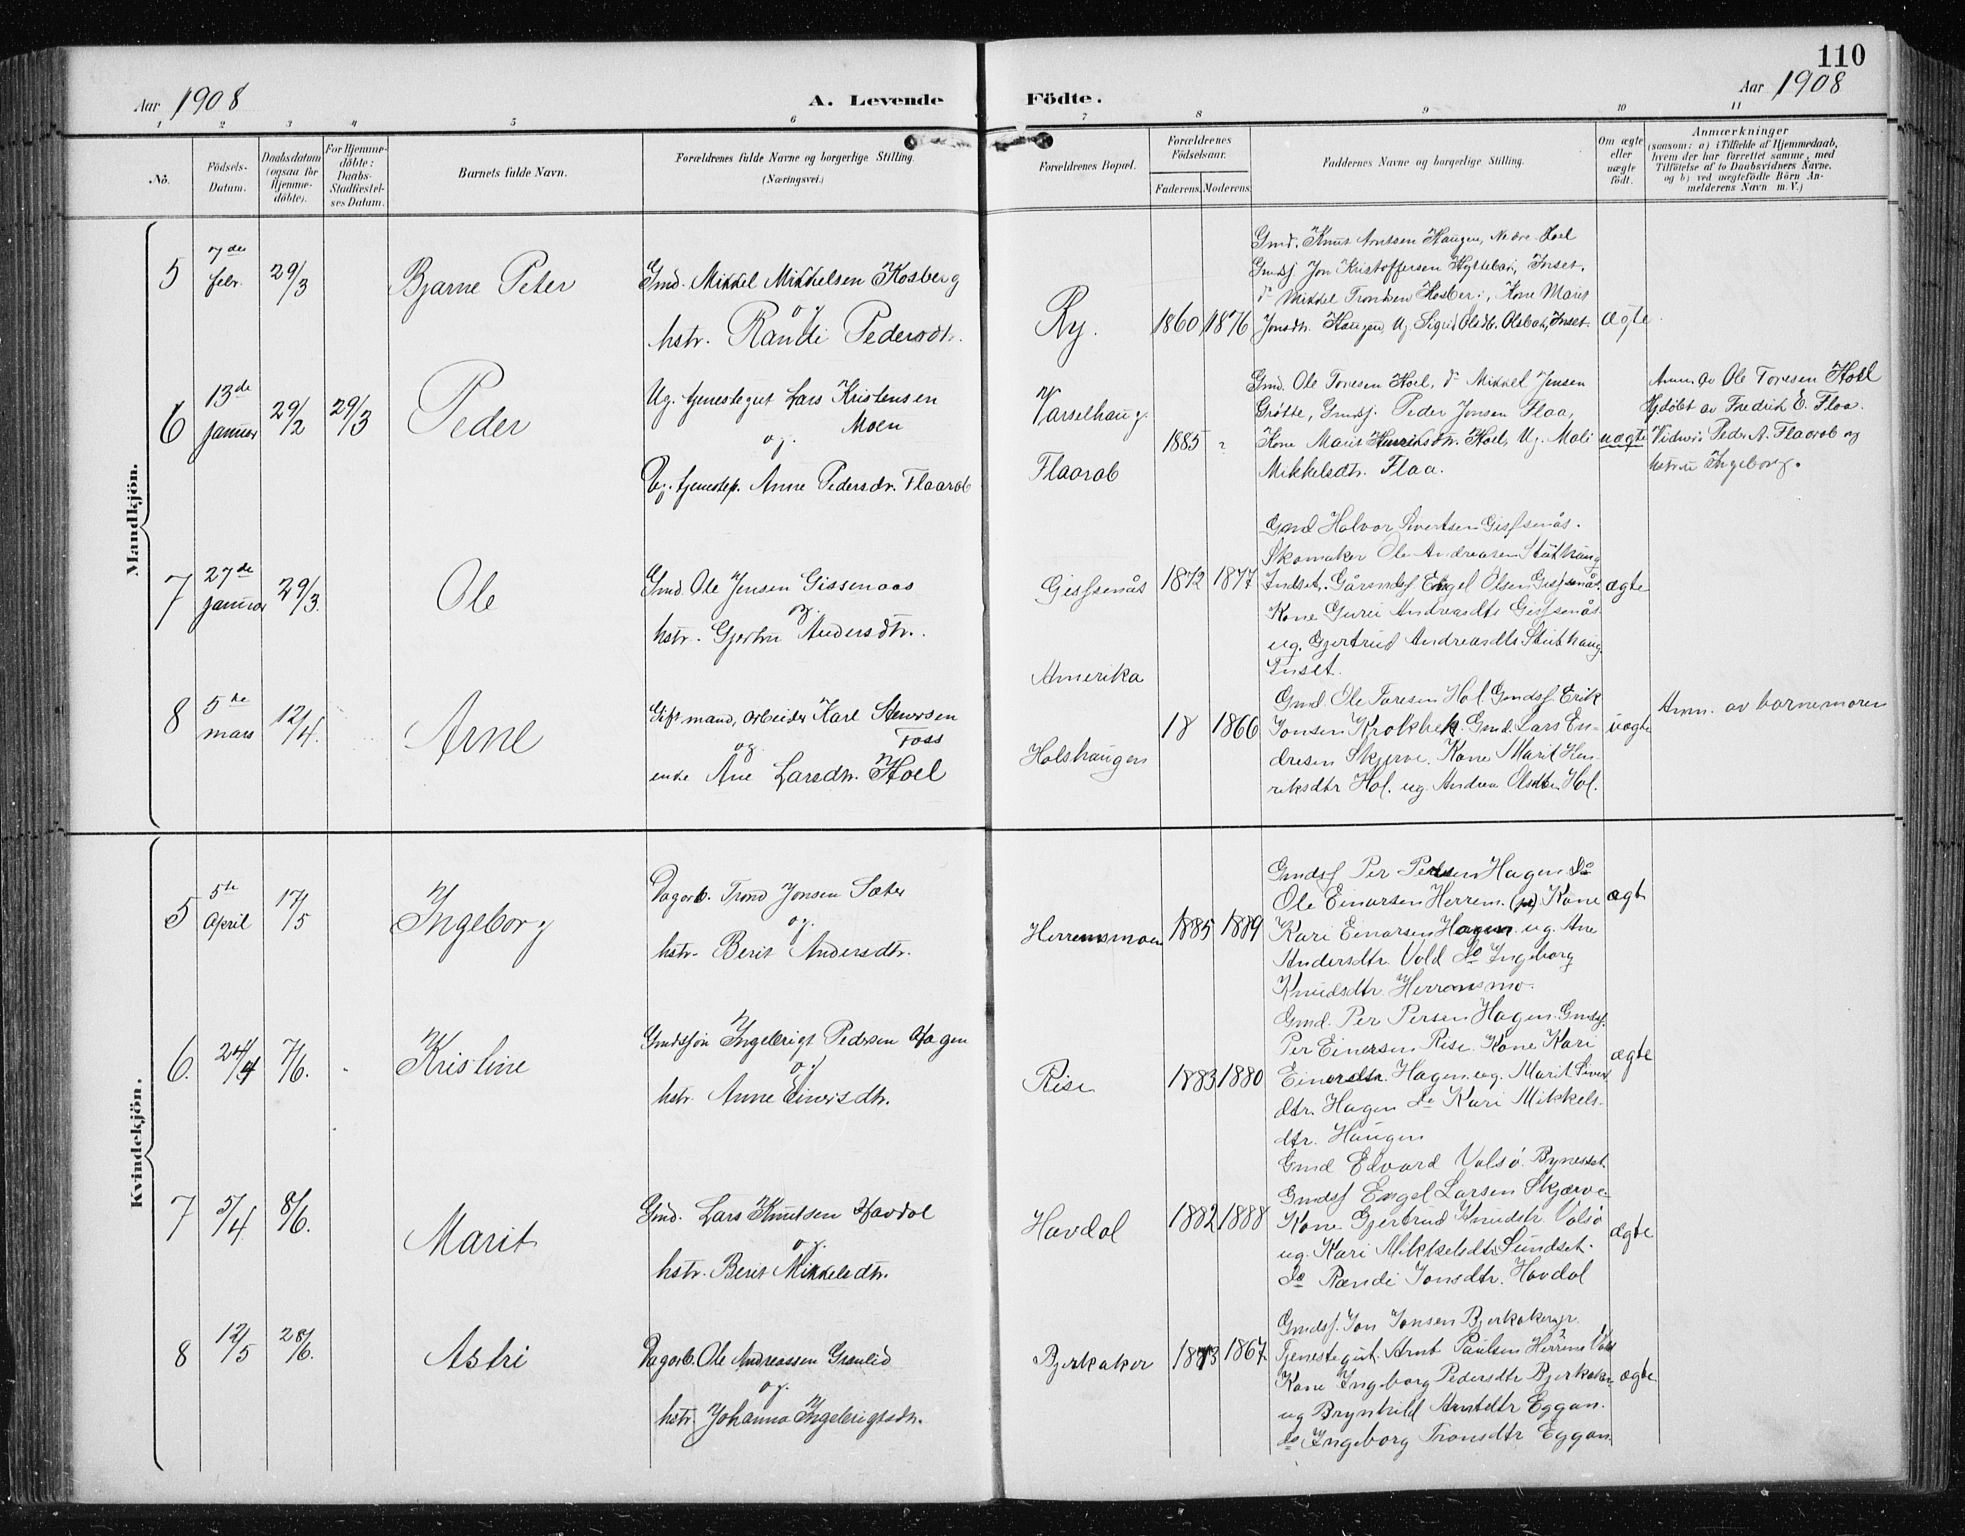 110
Aar 1908
A. Levende
Födte.
Aar 1908
1 2 3 4 5 6 7 8 9 10 11
No.
Födsels-
Datum.
Daabsdatum
(ogsaa for
Hjemme-
döbte).
For Hjemme-
döbte:
Daabs-
Stadfæstel-
ses Datum.
Barnets fulde Navn.
Forældrenes fulde Navne og borgerlige Stilling.
(Næringsvei.)
Forældrenes Bopæl.
Forældrenes
Födselsaar.
Faderens. Moderens.
Faddernes Navne og borgerlige Stilling.
Om ægte
eller
uægte
födt.
Anmærkninger
(saasom: a) i Tilfælde af Hjemmedaab,
hvem der har forrettet samme, med
Tilföielse af to Daabsvidners Navne,
og b) ved uægtefödte Börn An-
melderens Navn m. V.)
Mandkjön.
5
7de
febr.
29/3
Bjarne Peter
Gmd. Mikkel Mikkelsen Kosberg
og
hstr. Randi Pedersdtr.
Ry.
1860 1876
Gmd. Knut Arntsen Haugen, Nedre Hoel
Gmdsj Jon Kristoffersen Hyttebak, Inset.
do Mikkel Trondsen Kosberg, Kone Marit
Jonsdtr. Haugen, Ug. Sigrid Olsdtr. Olsbak, Inset.
ægte
6
13de
januar
29/2
29/3
Peder
Ug. tjenestegut Lars Kristensen
Moen
og.
Ug. tjenestep. Anne Pedersdr. Flaarab
Varselhaug
Flaarab
1885 "
Gmd. Ole Toresen Hoel, do Mikkel Jensen
Grøtte, Gmdsj. Peder Jonsen Flaa,
Kone Marit Henriksdtr. Hoel, Ug. Mali
Mikkelsdtr. Flaa.
uægte
Anm. av Ole Toresen Hoel
Hjdöbt av Fredrik E. Flaa.
Vidner: Peder A. Flaarab og
hstru Ingeborg.
7
27de
januar
29/3.
Ole
Gmd. Ole Jensen Gissenaas
og.
hstr. Gjertru Andersdtr.
Gisssenås
1872 1877
Gmd Halvor Sivertsen Gissenås.
Skomaker Ole Andreasen Stuthaug
Indset, Gårmdsf Engel Olsen Gissenås.
Kone Guri Andreasdtr Gissenås
ug. Gjertrud Andreasdtr Stuthaug
Inset.
ægte
8
5te
mars
12/4.
Arne
Gift mand, arbeider Karl Stenersen
Foss
og
enke Ane Larsdtr. Hoel
Amerika
Holshaugen
18 1866
Gmd. Ole Toresen Hol. Gmdsf Erik
Jonsen Krokbek. Gmd. Lars En-
dresen Skjerve. Kone Marit Hen-
riksdtr Hol. ug. Andrea Olsdtr Hol.
uægte
Anm. av barnemoren
Kvindekjön.
5
5te
April
17/5
Ingeborg
Dagarb. Trond Jonsen Sæter
og.
hstr. Berit Andersdtr.
Herremsmoen
1885 1889
Gmdsf Per Persen Hagen do
Ole Einarsen Herrem. Kone
Kari Einarsen Hagen. ug. Ane
Andersdtr. Vold do Ingeborg
Knudsdtr. Herremsmo.
ægte
6.
24/4
7/6.
Kristine
Gmdssøn Ingebrigt Pedersen Hagen
og
hstr. Anne Einersdtr.
Rise
1883 1880
Gmd. Per Persen Hagen. Gmdsf.
Per Einersen Rise. Kone Kari
Einersdtr. Hagen. ug. Marit Sivert
dtr. Hagen do Kari Mikkels-
dtr. Haugen
ægte
7
5/4
8/6.
Marit
Gmd. Lars Knutsen Havdal
og.
hstr. Berit Mikkelsdtr.
Havdal
1882 1888
Gmd Edvard Valsö. Bynesset
Gmdsf Engel Larsen Skjærve.
Kone Gjertrud Knudsdtr. Valsö
ug. Kari Mikkelsdtr Sundset.
do Randi Jonsdtr. Havdal
ægte
8
12/5
28/6.
Astri
Dagarb. Ole Andreassen Granlid
og.
hstr. Johanna Ingebrigtsdtr.
Bjerkaker
1873 1867.
Gmdsf. Jon Jonsen Bjerkaker
Tjenestegut. Arnt Paulsen Herrem
Kone Ingeborg Pedersdtr Bjerkaker
ug Brynhild Arntsdtr Eggan.
do Ingeborg Tronsdtr Eggan.
ægte